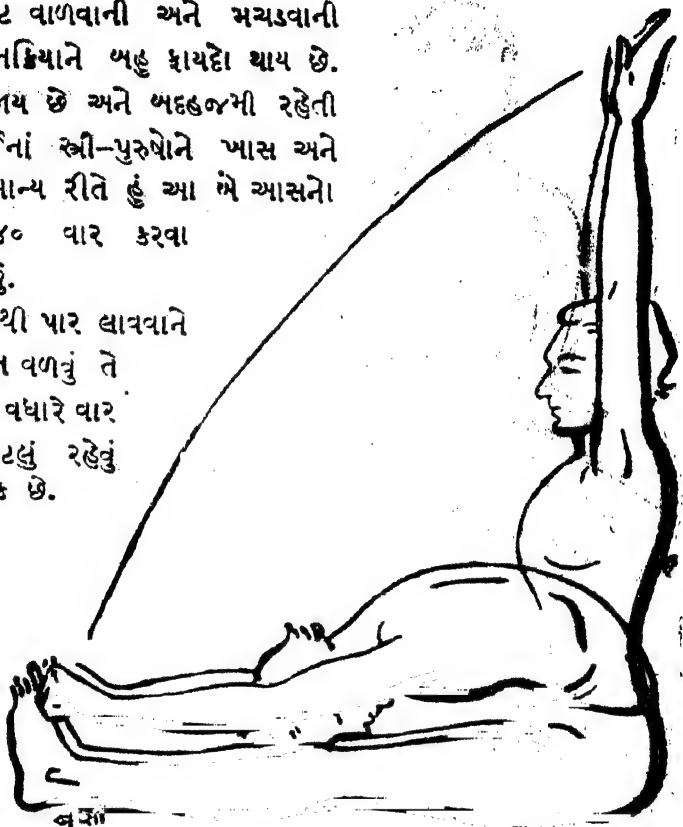 ટ વાળવાની અને મચડવાની
નક્રિયાને બહુ ફાયદો થાય છે.
જાય છે અને બદહજમી રહેતી
ર્ઈનાં સ્ત્રી-પુરુષોને ખાસ અને
માન્ય રીતે હું આ બે આસનો
૪૦ વાર કરવા
છું.
થી પાર લાવવાને
ન વળવું તે
વધારે વાર
ટલું રહેવું
ક છે.